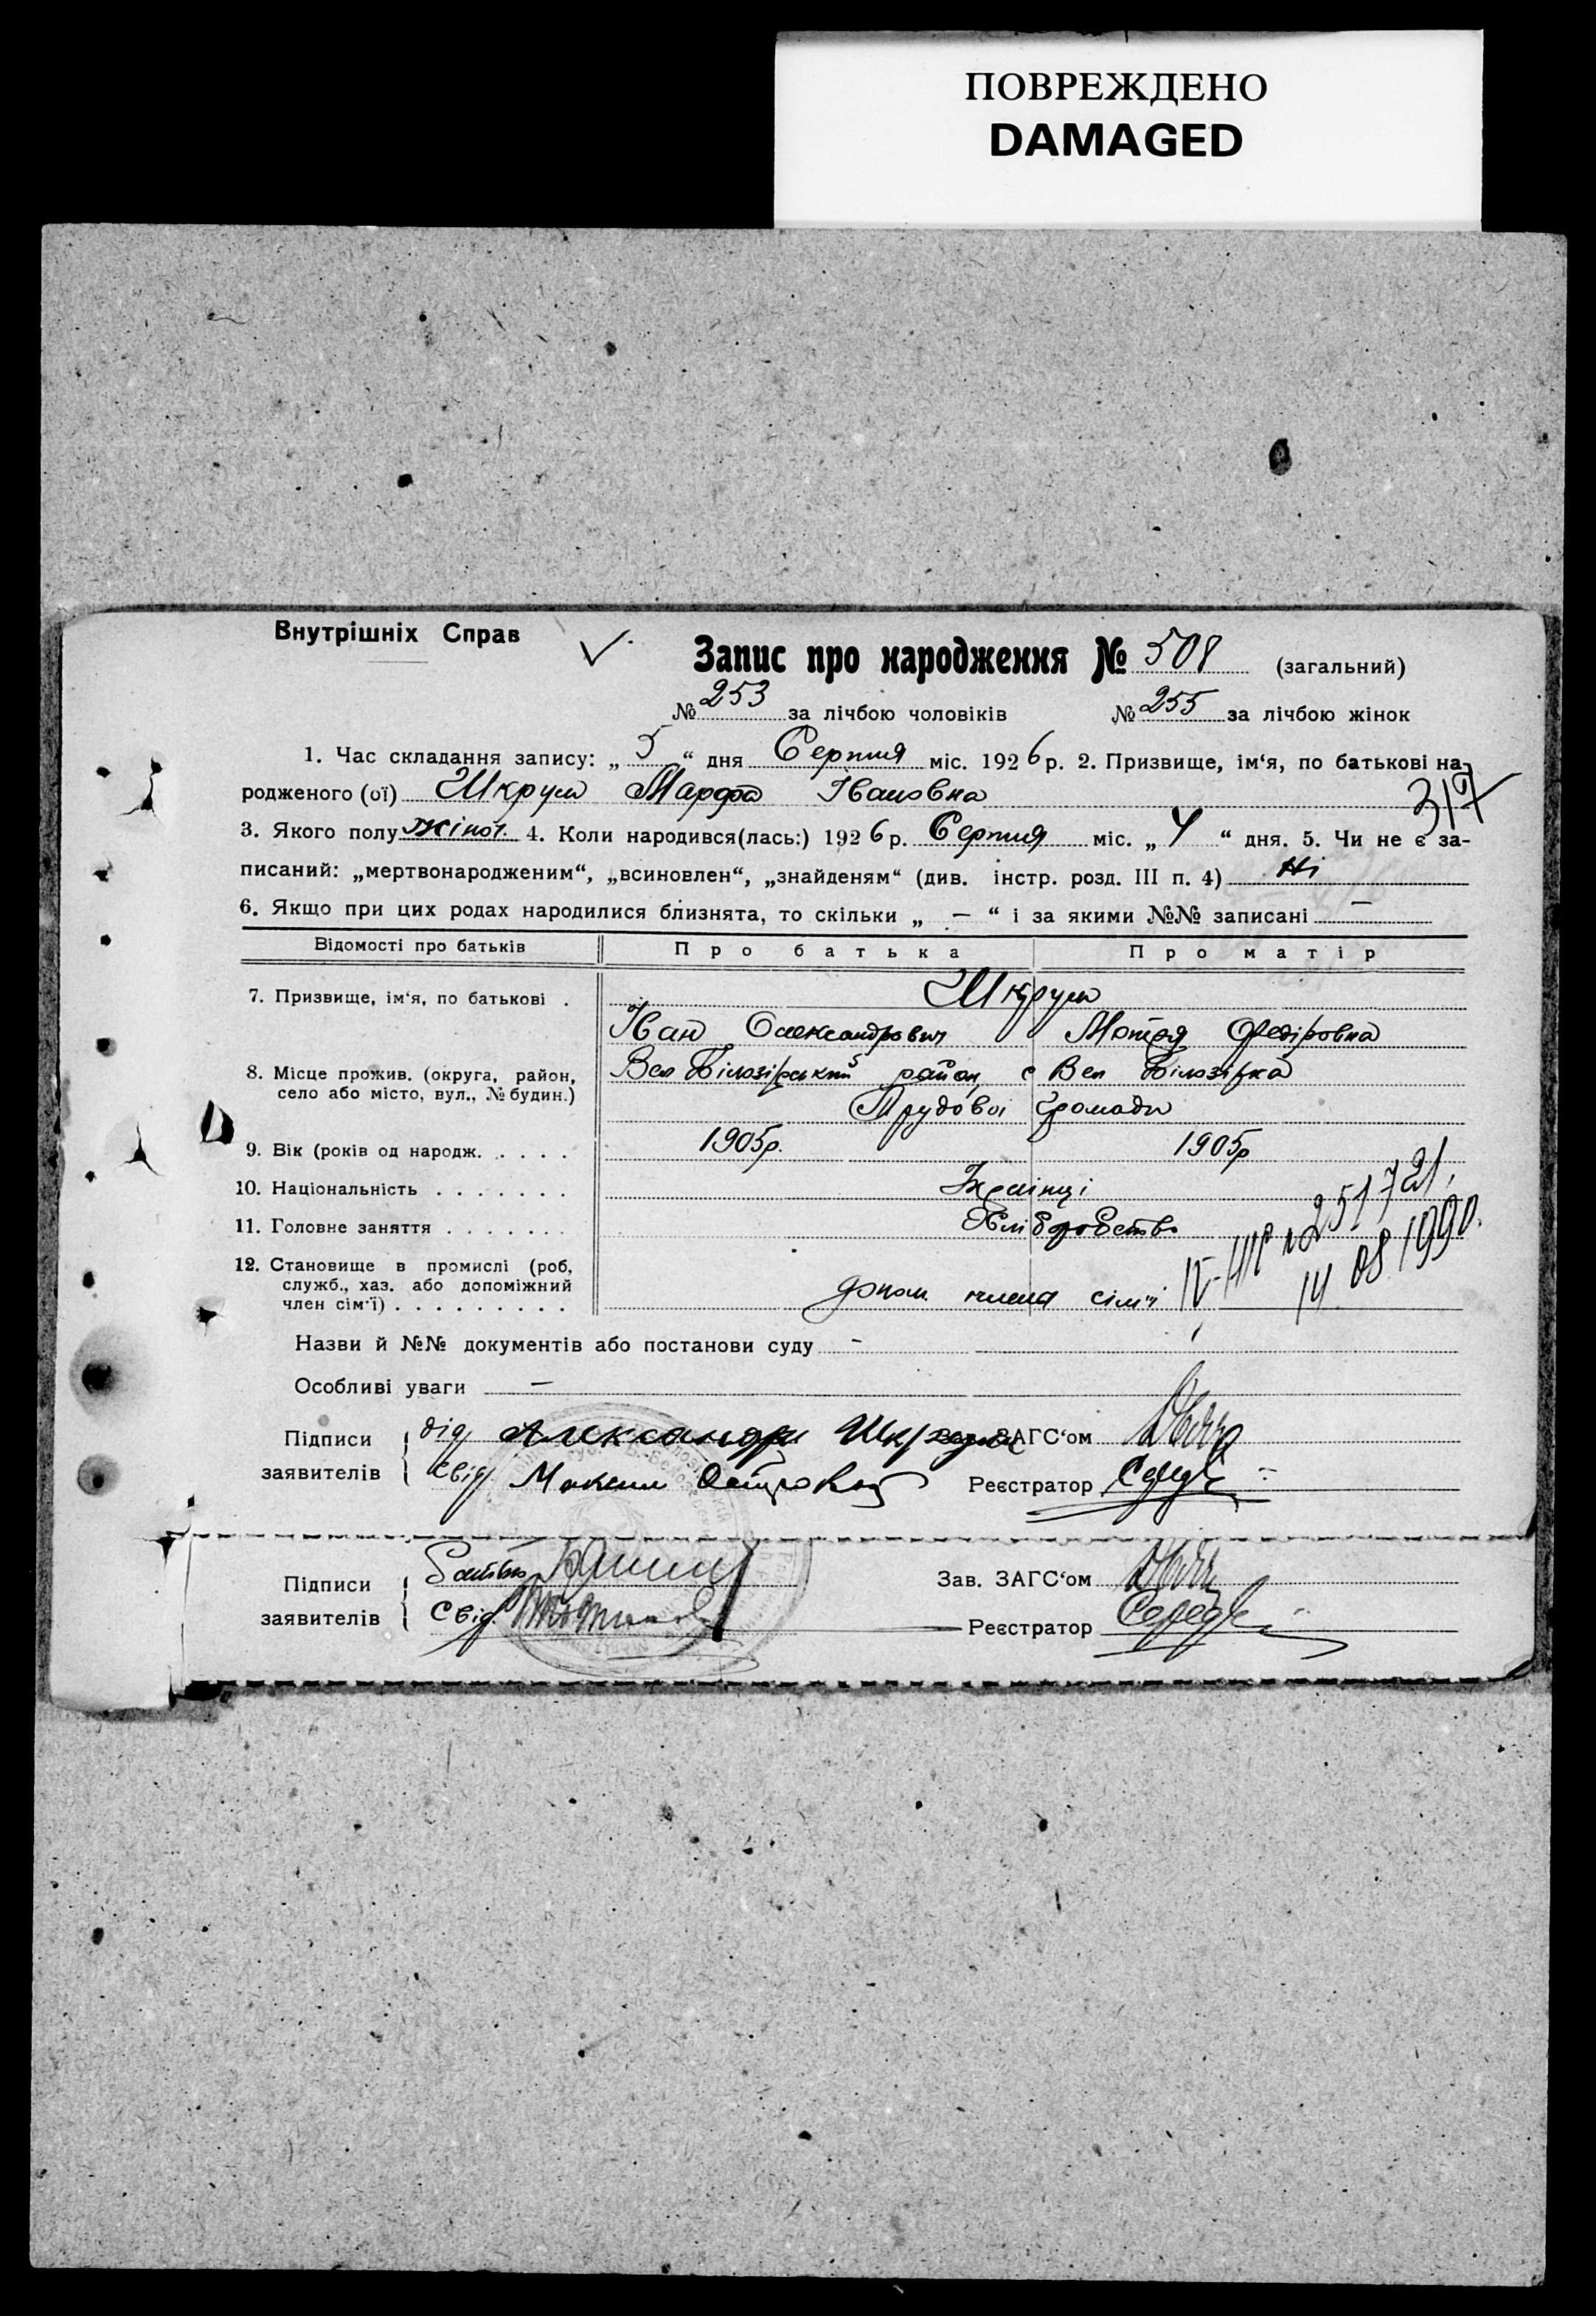 ПОВРЕЖДЕНО
DAMAGED
Внутрішніх Справ
Запис про народження № 508 (загальний)
№ 253 за лічбою чоловіків № 255 за лічбою жінок
1. Час складання запису: „ 5 “ дня Серпня міс. 1926 р. 2. Призвище, ім‘я, по батькові на-
родженого (ої) Шкрум Марфа Івановна 317
3. Якого полу жіноч. 4. Коли народився(лась:) 1926 р. Серпня міс. „ 4 “ дня. 5. Чи не є за-
писаний: „мертвонародженим“, „всиновлен“, „знайденям“ (див. інстр. розд. III п. 4) Ні
6. Якщо при цих родах народилися близнята, то скільки „ — “ і за якими №№ записані —
Відомості про батьків Про батька Про матір
7. Призвище, ім‘я, по батькові . Шкрум
Іван Олександрович Мотря Федіровна
8. Місце прожив. (округа, район, Вел Білозірський район, с Вел Білозірка
село або місто, вул., № будин.) Трудової громади
9. Вік (років од народж. . . . . 1905р. 1905р
10. Національність . . . . . . . Українці
11. Головне заняття . . . . . . Хліборобство
12. Становище в промислі (роб,
служб., хаз. або допоміжний
член сім‘ї) . . . . . . . . . допом. члена сім'ї
251721,
14 08 1990.
Назви й №№ документів або постанови суду -
Особливі уваги —
Підписи дід Александр Шкрум ЗАГС‘ом
заявителів свід Максим Реєстратор
Підписи Батько Зав. ЗАГС‘ом
заявителів Свід. Реєстратор